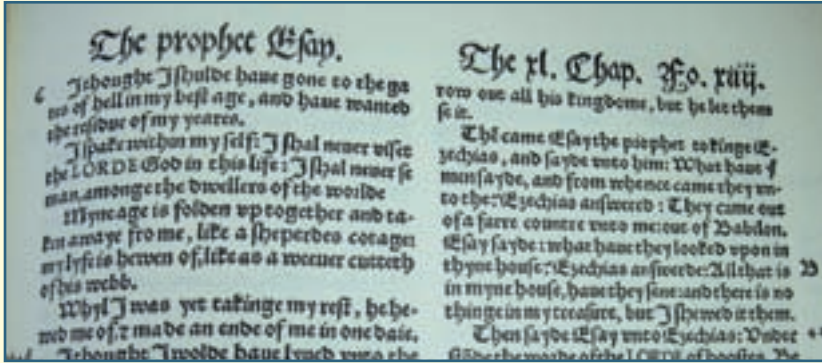 The prophet Esay.
c
I thought I shulde haue gone to the ga
tes of hell in my best age, and haue wanted
the residue of my yeares.
I spake within my self: I shal neuer viset
the LORDE God in this life: I shal neuer se
man, amonge the dwellers of the worlde
Myne age is folden vp together and ta-
ken awaye fro me, like a sheperdes cotage:
my lyfe is hewen of, like as a weeuer cutteth
of his webb.
Whyl I was yet takinge my rest, he he-
wed me of, & made an ende of me in one daie.
I thought I wolde haue lyued vnto the
The xl. Chap. Fo. xiiij.
row out all his kingdome, but he let them
se it.
The came Esay the prophet to kinge E-
zechias, and sayde vnto him: What haue
men sayde, and from whence came they vn-
to the: Ezechias answered: They came out
of a farre countre vnto me: out of Babilon.
Esay sayde: what haue they looked vpon in
thyne house: Ezechias answerde: All that is B
in myne house, haue they sene: and there is no
thinge in my treasure, but I shewed it them.
Then sayde Esay vnto Ezechias: Vnder
the worde of the LORDE of